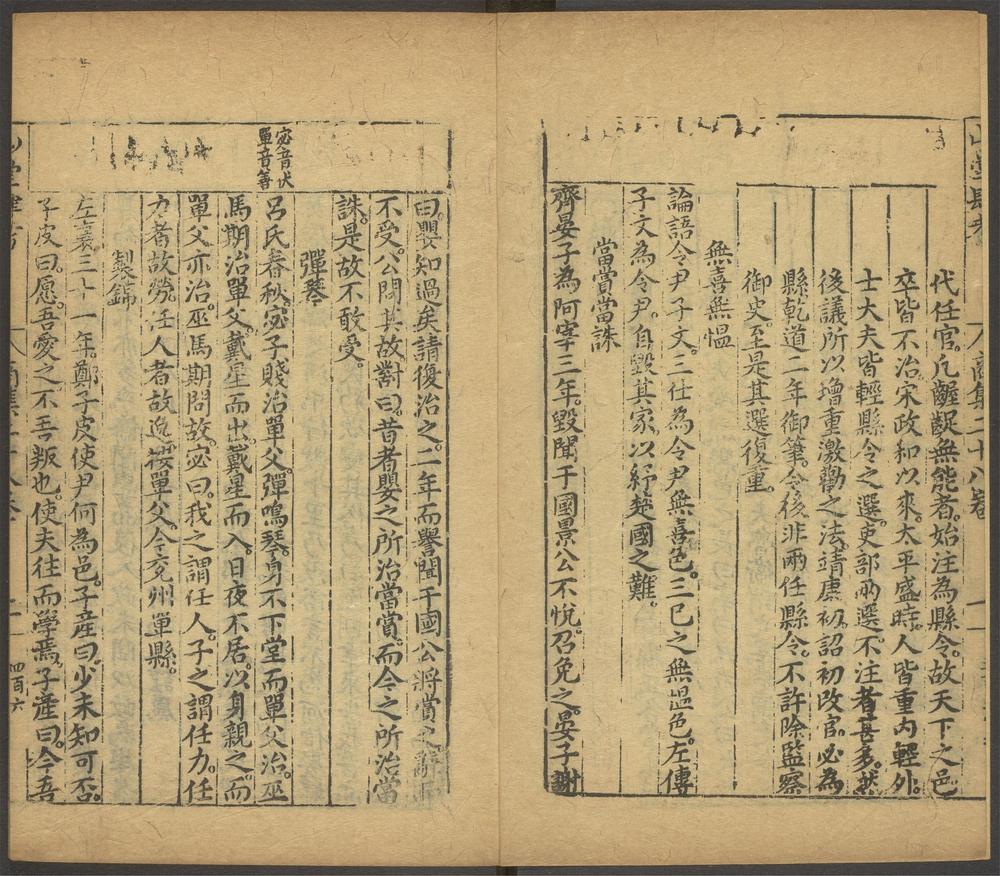 代任官凡齷齪無能者始注為縣令故天下之邑
卒皆不治宋政和以來太平盛時人皆重內輕外
士大夫皆輕縣令之選吏部兩選不注者甚多然
後議所以增重激勸之法靖康初詔初改官必為
縣乾道二年御筆令後非兩任縣令不許除監察
御史至是其選復重
無喜無慍
論語令尹子文三仕為令尹無喜色三已之無慍色左傳
子文為令尹自毀其家以紓楚國之難
當賞當誅
齊晏子為阿宰三年毀聞于國景公不悅召免之晏子謝
曰嬰知過矣請復治之二年而譽聞于國公將賞之辭而
不受公問其故對曰昔者嬰之所治當賞而今之所治當
誅是故不敢受
彈琴
宓音伏
單音善
呂氏春秋宓子賤治單父彈鳴琴身不下堂而單父治巫
馬期治單父戴星而出戴星而入日夜不居以身親之而
單父亦治巫馬期問故宓曰我之謂任人子之謂任力任
力者故勞任人者故逸單父今兗州單縣
製錦
左襄三十一年鄭子皮使尹何為邑子產曰少未知可否
子皮曰愿吾愛之不吾叛也使夫往而學焉子產曰今吾
四百六